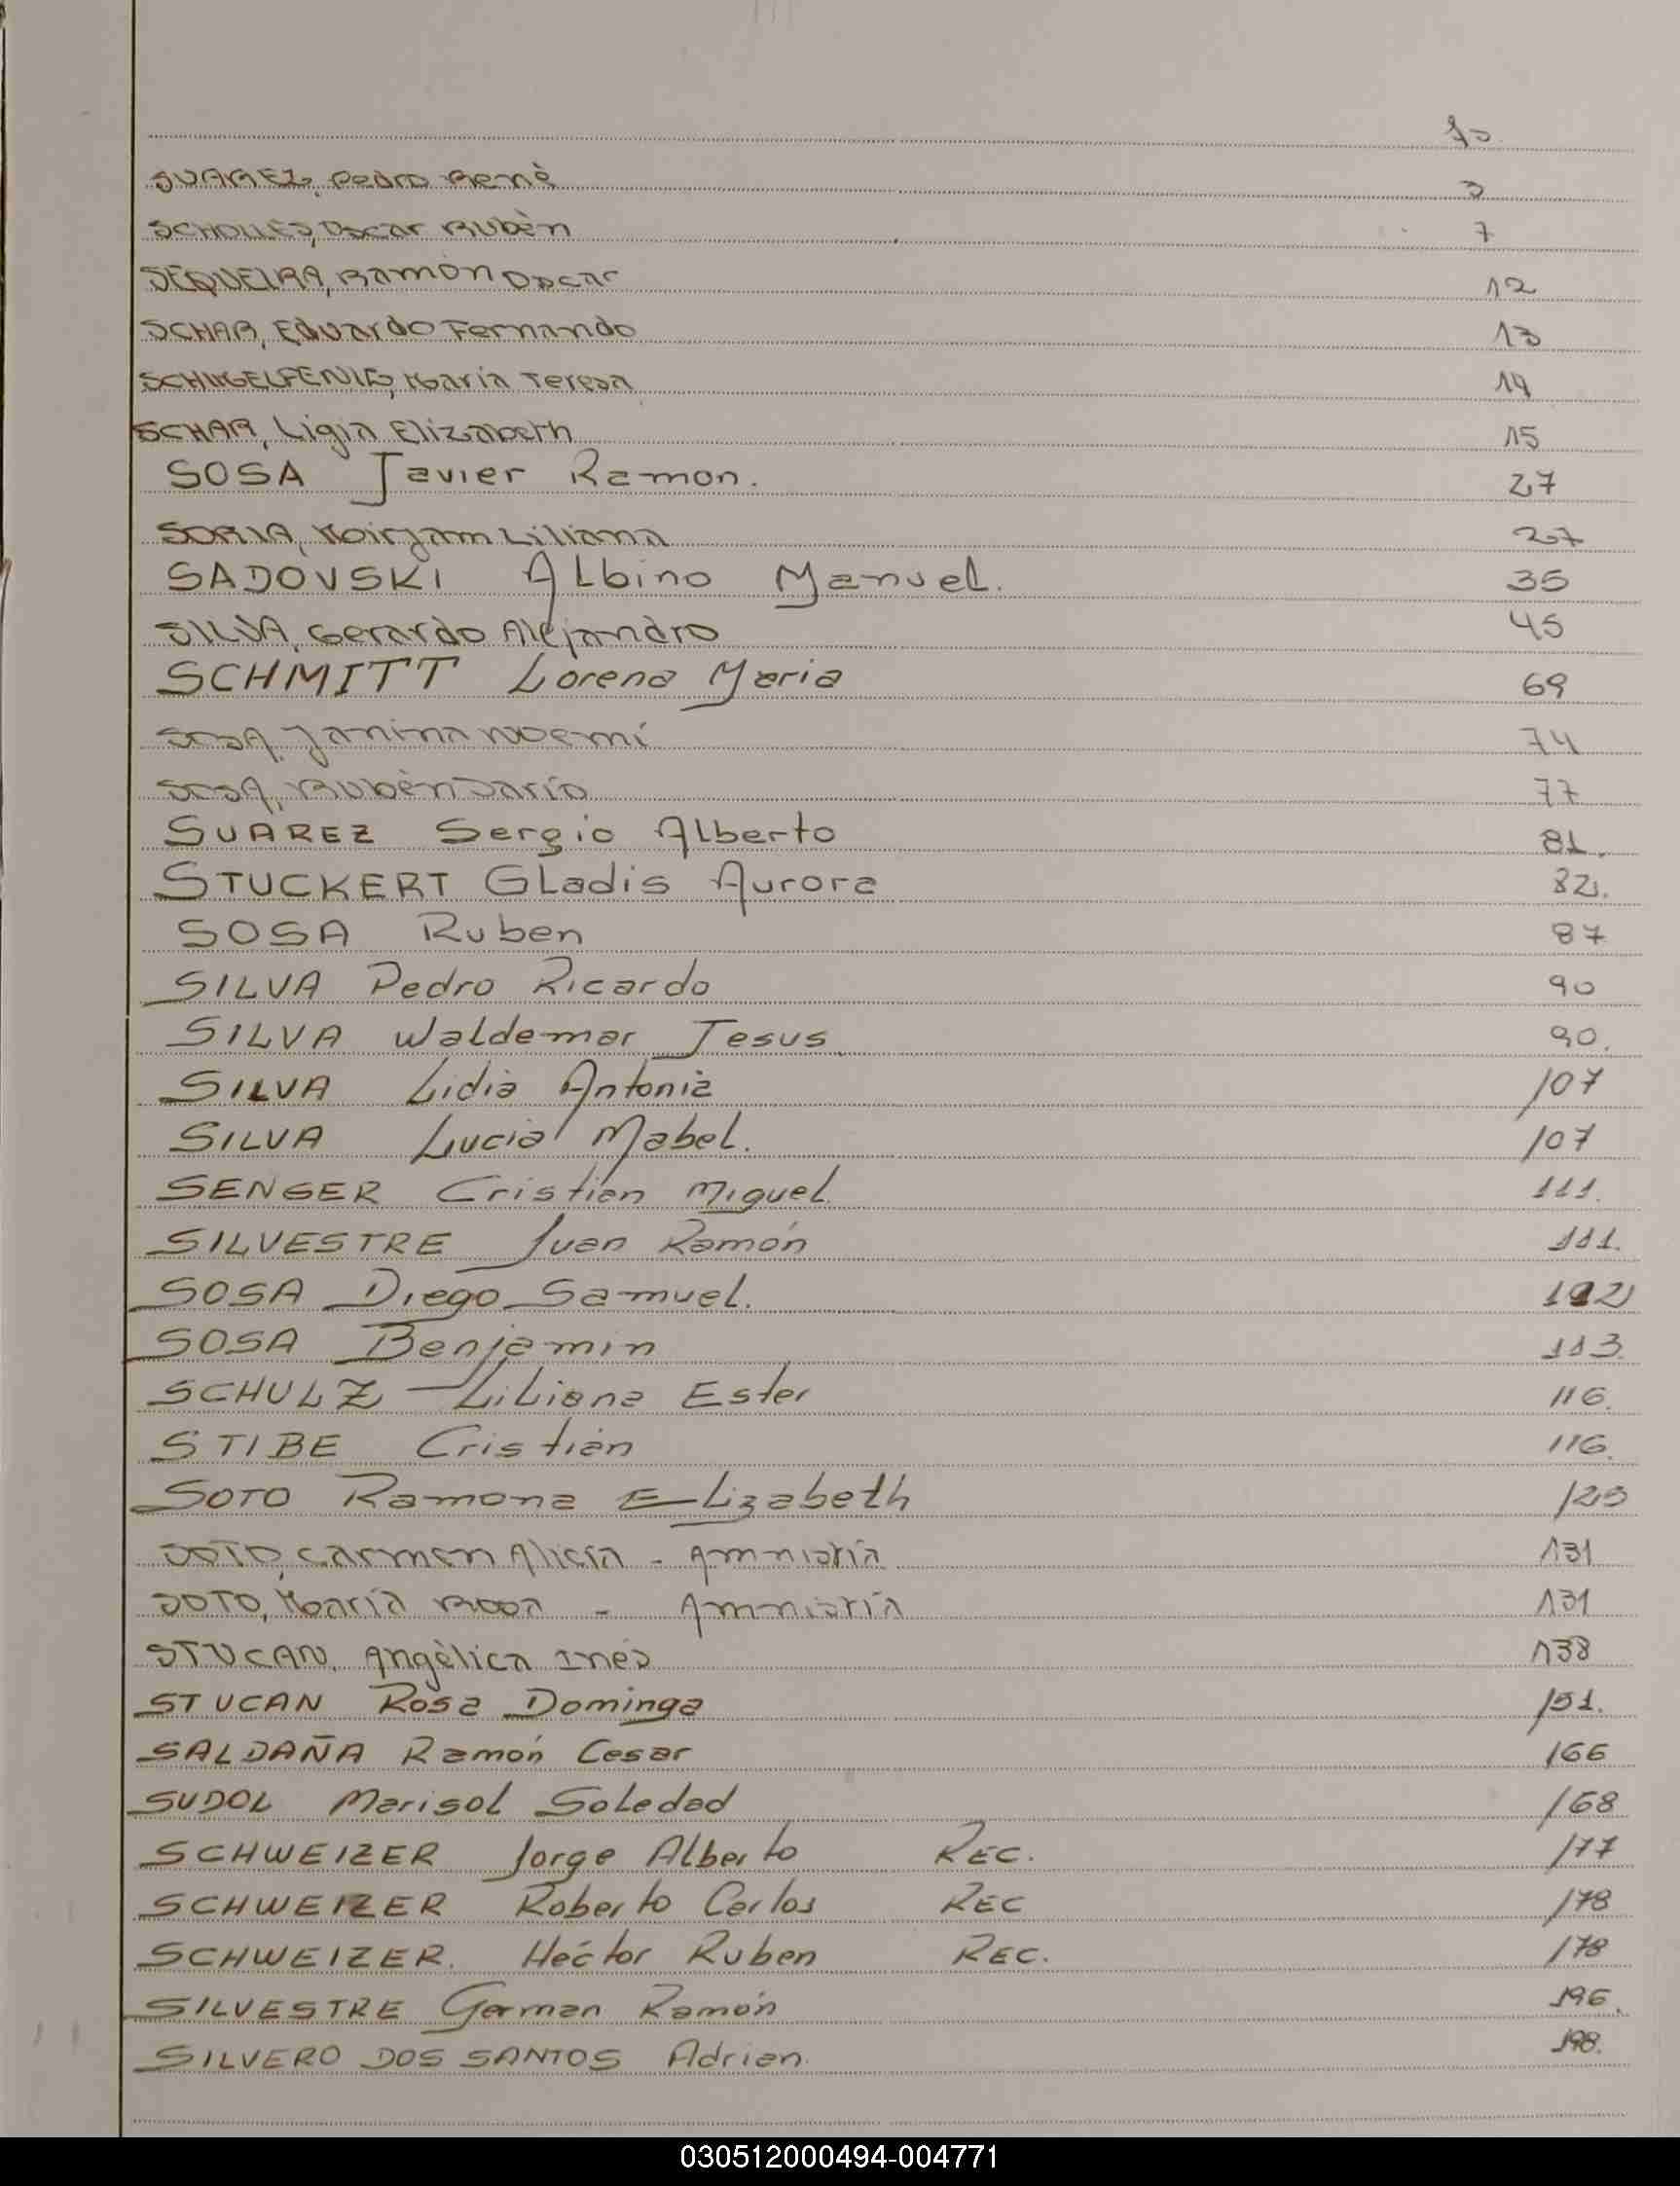 Fº
SUAREZ, Pedro Renè 3
SCHOLLES, Oscar Rubèn 7
SEQUEIRA, Ramòn Oscar 12
SCHAR, Eduardo Fernando 13
María Teresa 14
SCHAR, Ligia Elizabeth 15
SOSA Javier Ramon. 27
SORIA, Liliana 27
SADOVSKI Albino Manuel. 35
SILVA, Gerardo Alejandro 45
SCHMITT Lorena Maria 69
SOSA, Janina Noemí 74
SOSA, Rubèn Darío 77
SUAREZ Sergio Alberto 81.
STUCKERT Gladis Aurora 82.
SOSA Ruben 87
SILVA Pedro Ricardo 90
SILVA Waldemar Jesus. 90.
SILVA Lidia Antonia 107
SILVA Lucia Mabel. 107
SENGER Cristian Miguel. 111.
SILVESTRE Juan Ramón 111.
SOSA Diego Samuel. 112
SOSA Benjamin 113.
SCHULZ Liliana Ester 116.
STIBE Cristián 116.
SOTO Ramona Elizabeth 125
SOTO, Carmen Alicia - Amnistía 131
SOTO, María Rosa - Amnistía 131
STUCAN, Angèlica Inés 138
STUCAN Rosa Dominga 151.
SALDAÑA Ramón Cesar 166
SUDOL Marisol Soledad 168
SCHWEIZER Jorge Alberto REC. 177
SCHWEIZER Roberto Carlos REC 178
SCHWEIZER. Héctor Ruben REC. 178
SILVESTRE German Ramón 196.
SILVERO DOS SANTOS Adrian. 198.
030512000494-004771